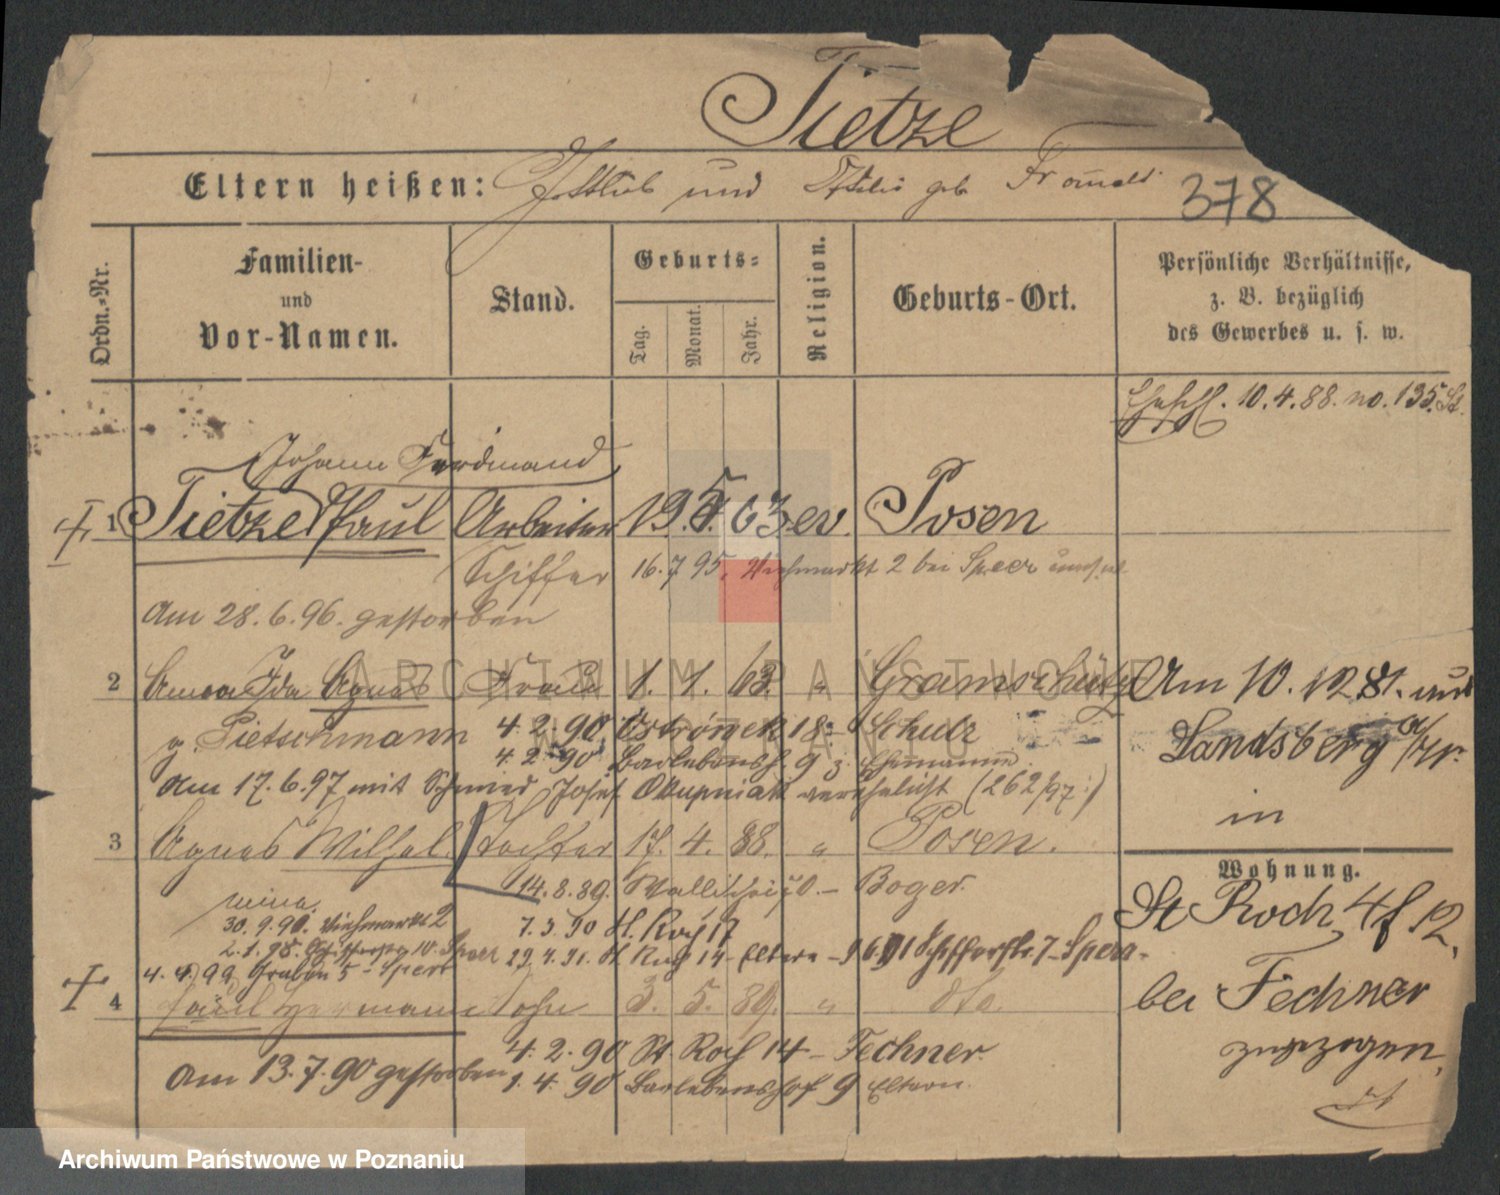 Tietze
Eltern heißen: Gottlieb und Ottilie geb Fromelt
378
Ordn.-Nr.
Familien-
und
Vor-Namen.
Stand.
Geburts-
Tag.
Monat.
Jahr.
Religion.
Geburts-Ort.
Persönliche Verhältnisse,
z. B. bezüglich
des Gewerbes u. s. w.
10.4.88. no. 135.
Johann Ferdinand
1 Tietze Paul Arbeiter 19. 5. 63 ev. Posen
Schiffer 16.7.95, Viehmarkt 2 bei Speer
Am 28.6.96. gestorben
2 Anna Ida Agnes Frau 1. 1. 63. " Gramschütz
Am 10.12.81. aus
Landsberg a/W.
in
g. Pietschmann 4.2.90. Ostrówek 18 - Schulz
4.2.90 Barlebensh. 9 z. Ehemann.
Am 17.6.97 mit Schmied Josef verehelicht (262/97.)
3 Agnes Wilhel. Tochter 17. 4. 88. " Posen.
mina.
14.8.89. Wallischei - Boger.
30.9.90. Viehmarkt 2 7.3.90 St. Roch 17
2.1.98. 10 Speer 29.4.91. St Roch 14 - Eltern - Schifferstr. 7 - Speer -
4.4.99 Graben 5 - Speer
4 Paul Hermann Sohn 3. 5. 89. " dto.
4.2.90 St Roch 14 - Fechner.
Am 13.7.90 gestorben 1.4.90 Barlebenshof 9 Eltern.
Wohnung.
St Roch 4 f 12.
bei Fechner
zugezogen.
ARCHIWUM PAŃSTWOWE
W POZNANIU
Archiwum Państwowe w Poznaniu